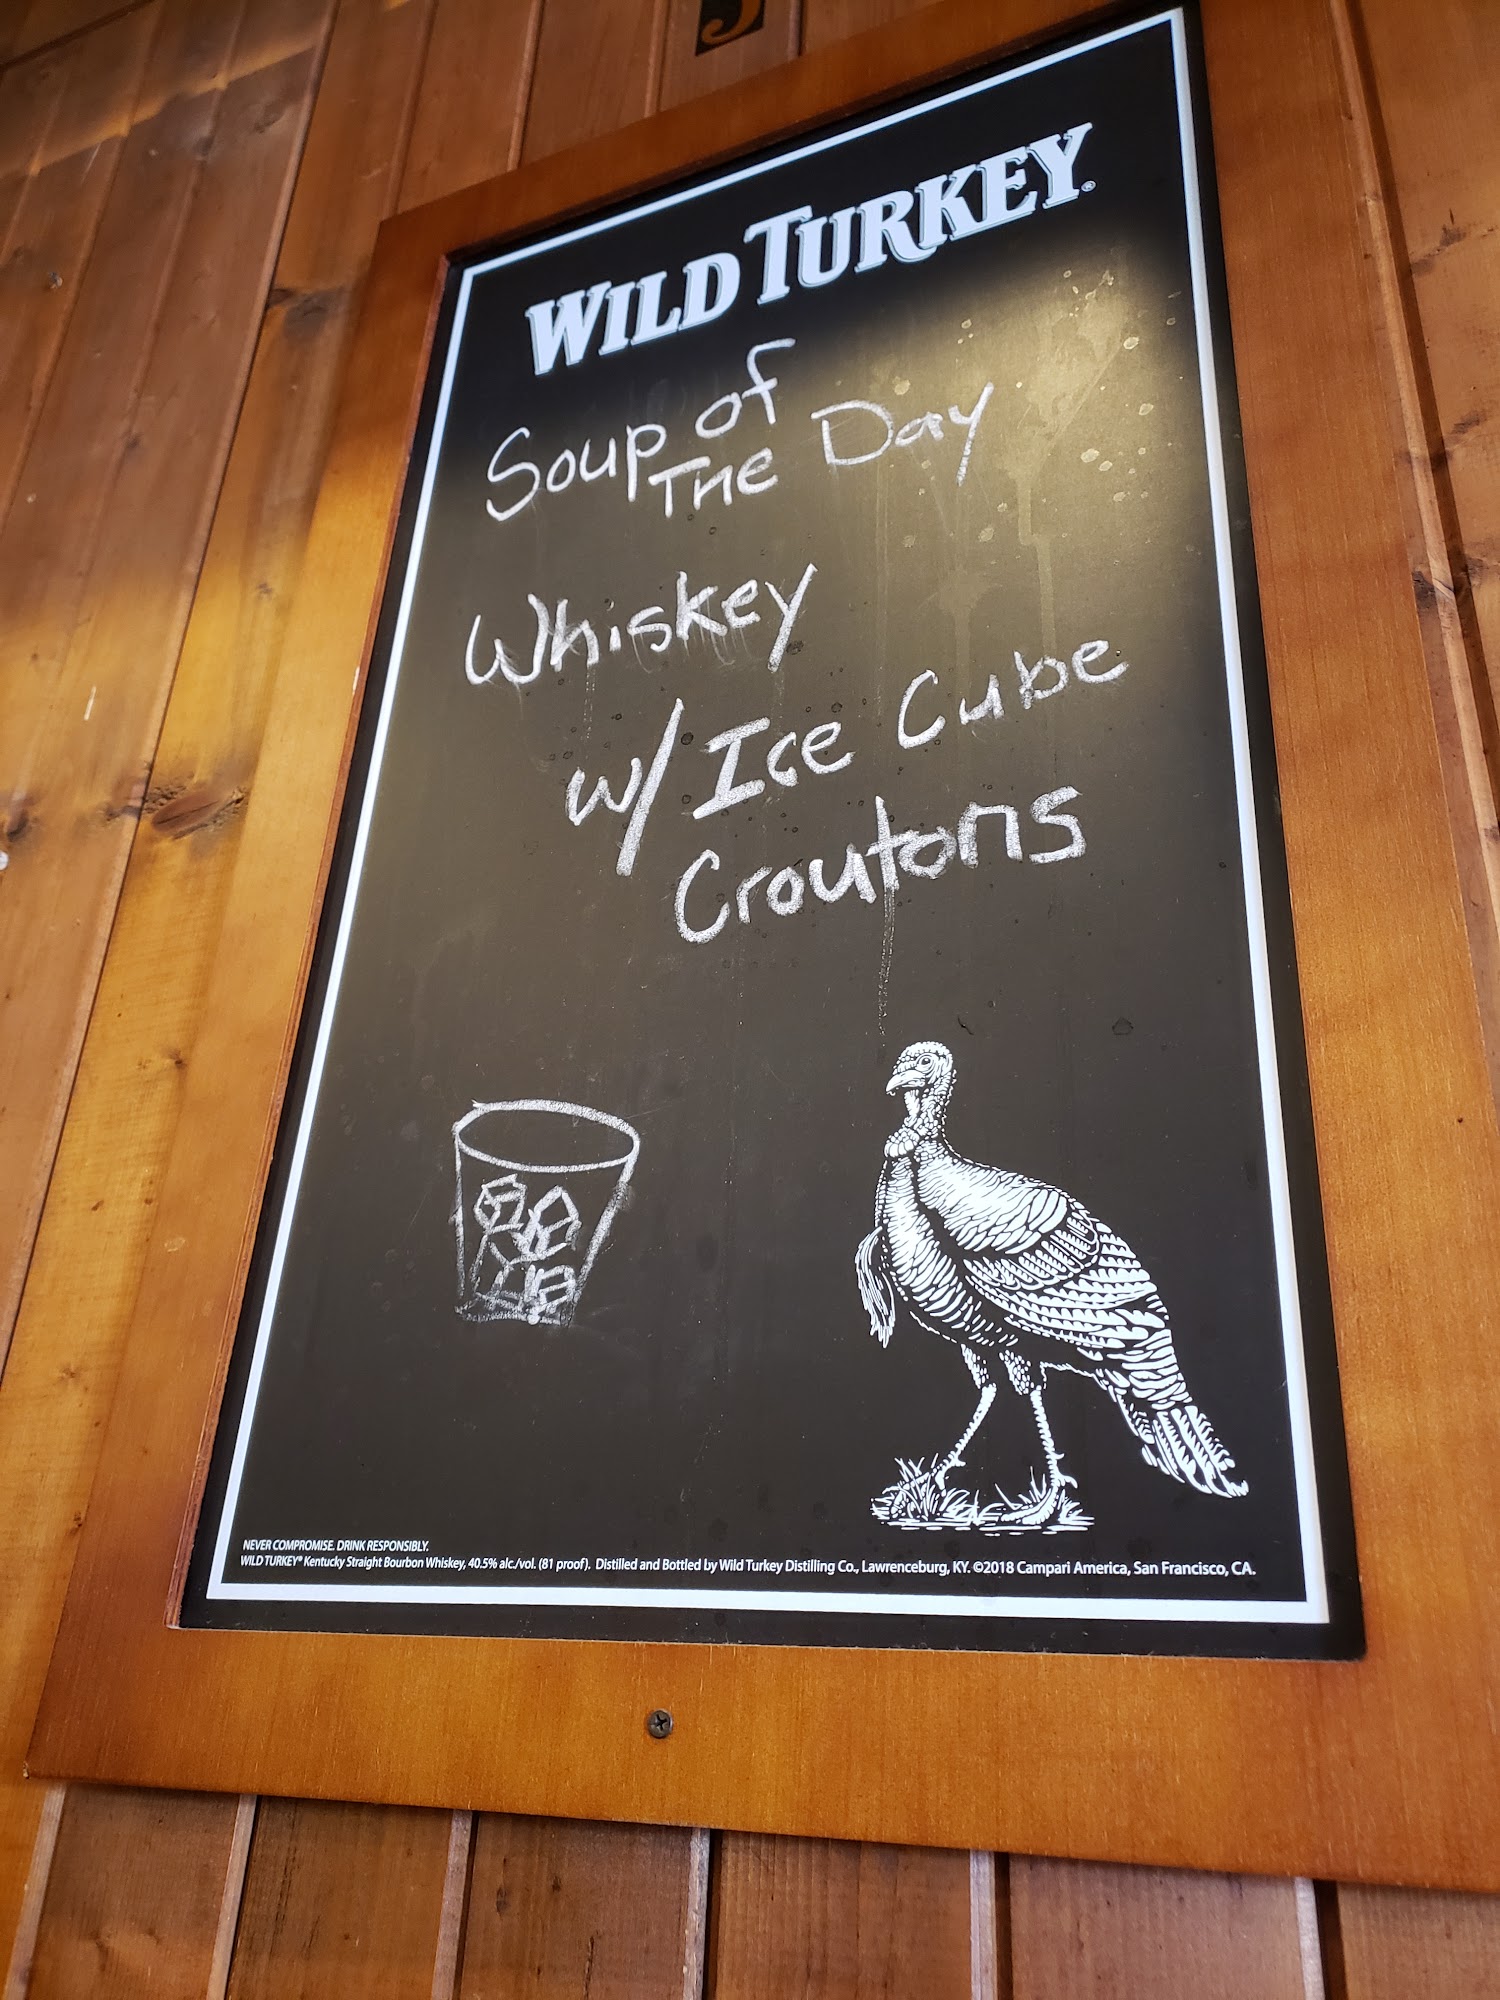 WILD TURKEY®
Soup of
The Day
Whiskey
w/ Ice Cube
Croutons
NEVER COMPROMISE. DRINK RESPONSIBLY.
WILD TURKEY® Kentucky Straight Bourbon Whiskey, 40.5% alc./vol. (81 proof). Distilled and Bottled by Wild Turkey Distilling Co., Lawrenceburg, KY. ©2018 Campari America, San Francisco, CA.